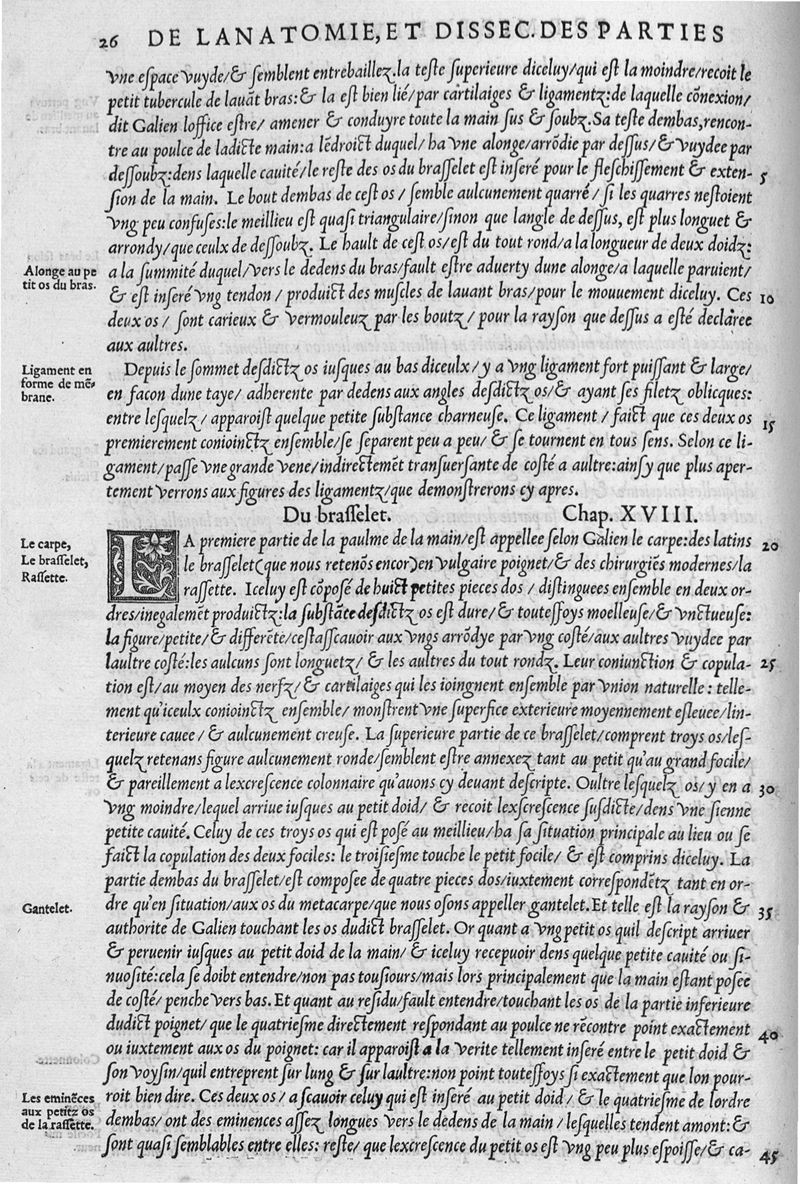 26 DE LANATOMIE, ET DISSEC. DES PARTIES
vne espace vuyde/& semblent entrebaillez. la teste superieure diceluy/qui est la moindre/recoit le
petit tubercule de lauāt bras: & la est bien lié/par cartilaiges & ligamentz: de laquelle cōnexion/
dit Galien loffice estre/ amener & conduyre toute la main sus & soubz. Sa teste dembas, rencon-
tre au poulce de ladicte main: a lēdroict duquel/ ha vne alonge/arrōdie par dessus/& vuydee par
dessoubz: dens laquelle cauité/le reste des os du brasselet est inseré pour le fleschissement & exten- 5
sion de la main. Le bout dembas de cest os / semble aulcunement quarré / si les quarres nestoient
vng peu confuses: le meillieu est quasi triangulaire/sinon que langle de dessus, est plus longuet &
arrondy/que ceulx de dessoubz. Le hault de cest os/est du tout rond/a la longueur de deux doidz:
Alonge au pe
tit os du bras.
a la summité duquel/vers le dedens du bras/fault estre aduerty dune alonge/a laquelle paruient/
& est inseré vng tendon / produict des muscles de lauant bras/pour le mouuement diceluy. Ces 10
deux os / sont carieux & vermouleuz par les boutz/ pour la rayson que dessus a esté declarée
aux aultres.
Ligament en
forme de mē-
brane.
Depuis le sommet desdictz os iusques au bas diceulx/ y a vng ligament fort puissant & large/
en facon dune taye/ adherente par dedens aux angles desdictz os/& ayant ses filetz oblicques:
entre lesquelz/ apparoist quelque petite substance charneuse. Ce ligament / faict que ces deux os 15
premierement conioinctz ensemble/se separent peu a peu/ & se tournent en tous sens. Selon ce li-
gament/passe vne grande vene/indirectemēt transuersante de costé a aultre: ainsy que plus aper-
tement verrons aux figures des ligamentz/que demonstrerons cy apres.
Du brasselet. Chap. XVIII.
Le carpe,
Le brasselet,
Rassette.
LA premiere partie de la paulme de la main/est appellee selon Galien le carpe: des latins 20
le brasselet(que nous retenōs encor)en vulgaire poignet/& des chirurgiēs modernes/la
rassette. Iceluy est cōposé de huict petites pieces dos / distinguees ensemble en deux or-
dres/inegalemēt produictz: la substāce desdictz os est dure/& toutesfoys moelleuse/& vnctueuse:
la figure/petite/& differēte/cestassçauoir aux vngs arrōdye par vng costé/aux aultres vuydee par
laultre costé: les aulcuns sont longuetz/ & les aultres du tout rondz. Leur coniunction & copula- 25
tion est/au moyen des nerfz/& cartilaiges qui les ioingnent ensemble par vnion naturelle : telle-
ment qu'iceulx conioinctz ensemble/ monstrent vne superfice exterieure moyennement esleuee/lin-
terieure cauee / & aulcunement creuse. La superieure partie de ce brasselet/comprent troys os/les-
quelz retenans figure aulcunement ronde/semblent estre annexez tant au petit qu'au grand focile/
& pareillement a lexcrescence colonnaire qu'auons cy deuant descripte. Oultre lesquelz os/y en a 30
vng moindre/lequel arriue iusques au petit doid/ & recoit lexscrescence susdicte/dens vne sienne
petite cauité. Celuy de ces troys os qui est posé au meillieu/ha sa situation principale au lieu ou se
faict la copulation des deux fociles: le troisiesme touche le petit focile/ & est comprins diceluy. La
partie dembas du brasselet/est composee de quatre pieces dos/iuxtement correspondētz tant en or-
Gantelet.
dre qu'en situation/aux os du metacarpe/que nous osons appeller gantelet. Et telle est la rayson & 35
authorite de Galien touchant les os dudict brasselet. Or quant a vng petit os quil descript arriuer
& peruenir iusques au petit doid de la main/ & iceluy recepuoir dens quelque petite cauité ou si-
nuosité: cela se doibt entendre/non pas tousiours/mais lors principalement que la main estant posee
de costé/ penche vers bas. Et quant au residu/fault entendre/touchant les os de la partie inferieure
dudict poignet/ que le quatriesme directement respondant au poulce ne rēcontre point exactement 40
ou iuxtement aux os du poignet: car il apparoist a la verite tellement inseré entre le petit doid &
son voysin/quil entreprent sur lung & sur laultre: non point toutesfoys si exactement que lon pour-
Les eminēces
aux petitz os
de la rassette.
roit bien dire. Ces deux os/ a scauoir celuy qui est inseré au petit doid/ & le quatriesme de lordre
dembas/ ont des eminences assez longues vers le dedens de la main / lesquelles tendent amont: &
sont quasi semblables entre elles: reste/ que lexcrescence du petit os est vng peu plus espoisse/& ca- 45